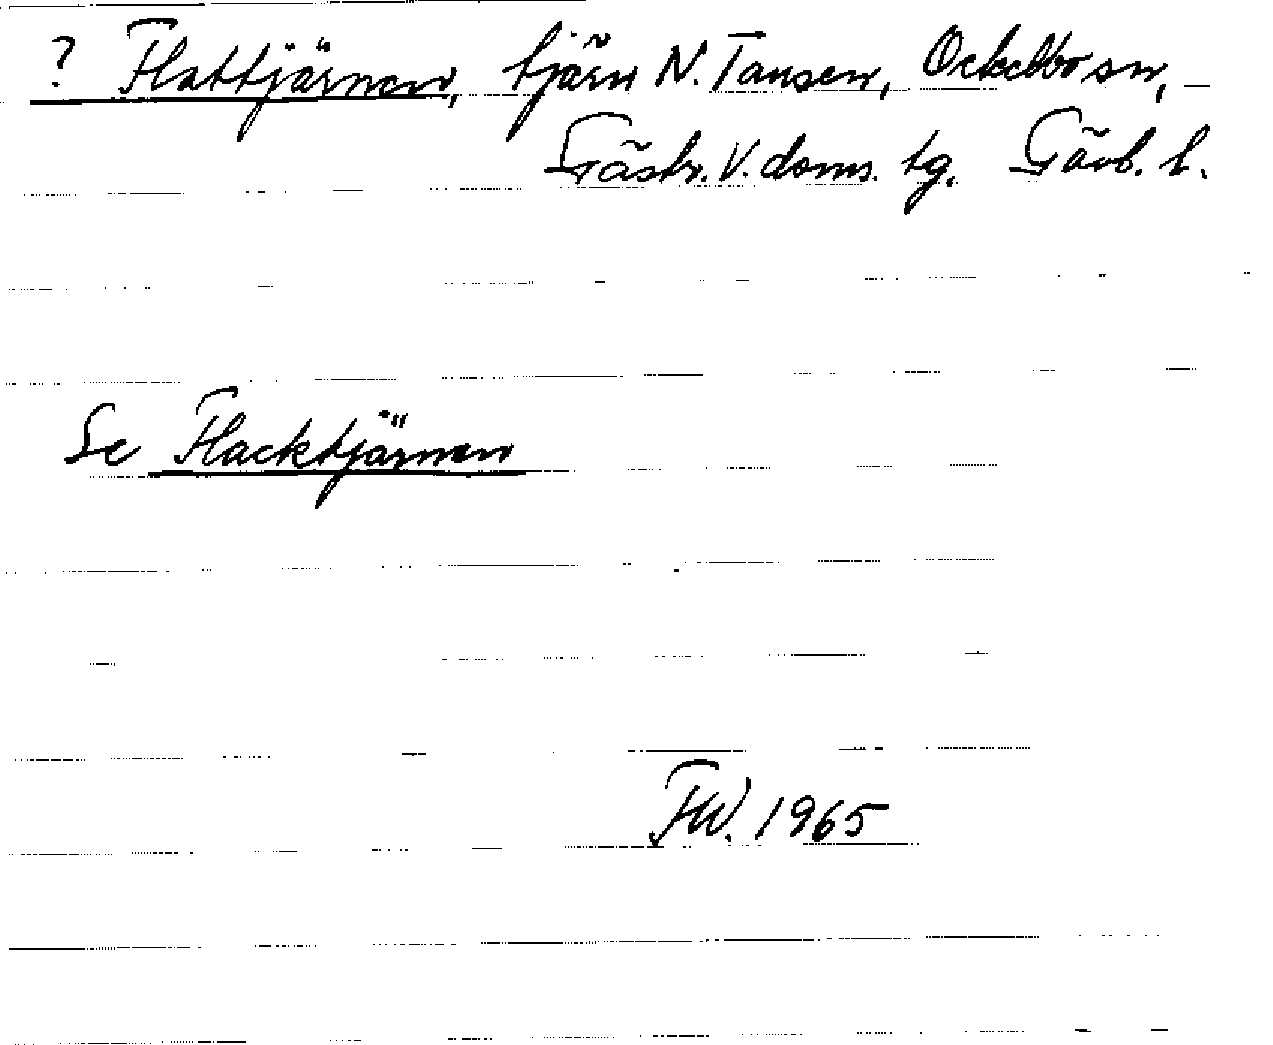 ? Flattjärnen, tjärn N. Tansen, Ockelbo sn,
Gästr. V. doms. tg. Gävb. l.
Se Flacktjärnen
FW. 1965